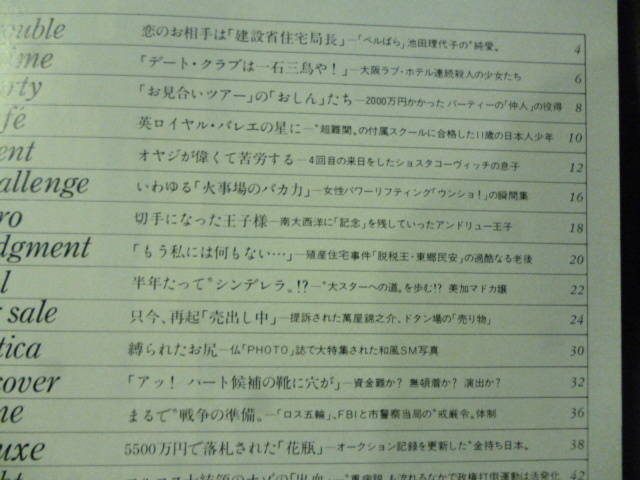 ouble 恋のお相手は「建設省住宅局長」―「ベルばら」池田理代子の〝純愛〟 4
ime 「デート・クラブは一石三鳥や!」―大阪ラブ・ホテル連続殺人の少女たち 6
arty 「お見合いツアー」の「おしん」たち―2000万円かかったパーティーの「仲人」の役得 8
fé 英ロイヤル・バレエの星に―〝超難関〟の付属スクールに合格した11歳の日本人少年 10
ent オヤジが偉くて苦労する―4回目の来日をしたショスタコーヴィッチの息子 12
allenge いわゆる「火事場のバカ力」―女性パワーリフティング「ウンショ!」の瞬間集 16
ro 切手になった王子様―南大西洋に「記念」を残していったアンドリュー王子 18
dgment 「もう私には何もない…」―殖産住宅事件「脱税王・東郷民安」の過酷なる老後 20
l 半年たって〝シンデレラ〟!?―〝大スターへの道〟を歩む!? 美加マドカ嬢 22
r sale 只今、再起「売出し中」―提訴された萬屋錦之介、ドタン場の「売り物」 24
tica 縛られたお尻―仏「PHOTO」誌で大特集された和風SM写真 30
cover 「アッ! ハート候補の靴に穴が」―資金難か? 無頓着か? 演出か? 32
me まるで〝戦争の準備〟―「ロス五輪」、FBIと市警察当局の〝戒厳令〟体制 36
uxe 5500万円で落札された「花瓶」―オークション記録を更新した〝金持ち日本〟 38
42